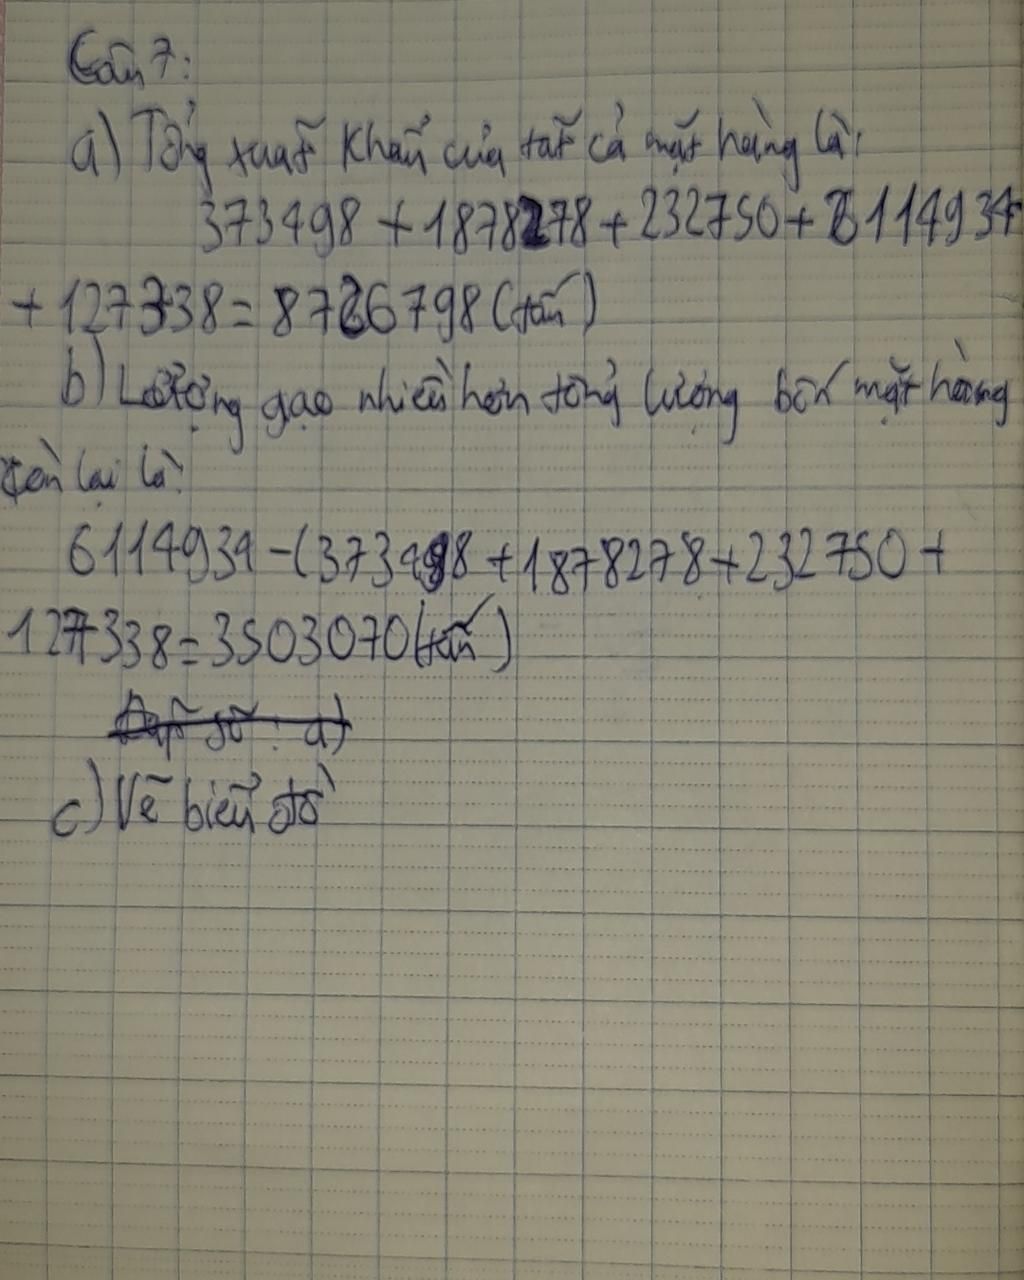 Câu 7:
a) Tổng xuất khẩu của tất cả mặt hàng là:
373498 + 1878278 + 232750 + 6114934
+ 127338 = 8726798 (tấn)
b) Lượng gạo nhiều hơn tổng lượng bốn mặt hàng
còn lại là:
6114934 - (373498 + 1878278 + 232750 +
127338 = 3503070 (tấn)
Đáp số : a)
c) Vẽ biểu đồ